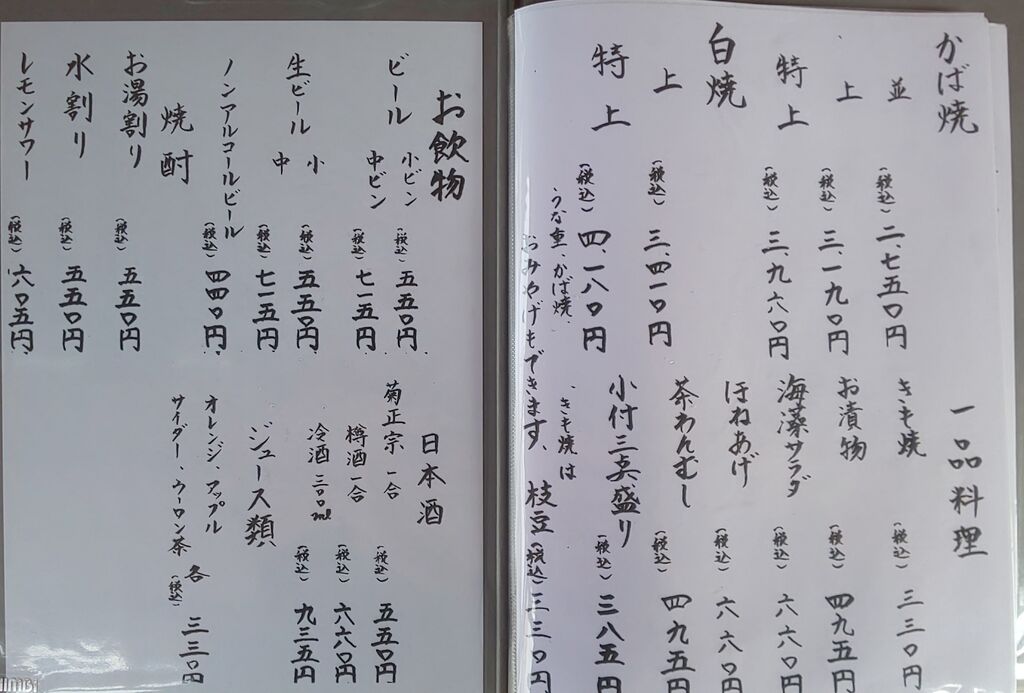 かば焼
並 (税込) 二、七五〇円
上 (税込) 三、一九〇円
特上 (税込) 三、九六〇円
白焼
上 (税込) 三、四一〇円
特上 (税込) 四、一八〇円
うな重、かば焼、
おみやげもできます、
一品料理
きも焼 (税込) 三三〇円
お漬物 (税込) 四九五円
海藻サラダ (税込) 六六〇円
ほねあげ (税込) 六六〇円
茶わんむし (税込) 四九五円
小付三点盛り (税込) 三八五円
きも焼は
枝豆 (税込) 三三〇円
お飲物
ビール 小ビン (税込) 五五〇円
中ビン (税込) 七一五円
生ビール 小 (税込) 五五〇円
中 (税込) 七一五円
ノンアルコールビール (税込) 四四〇円
焼酎
お湯割り (税込) 五五〇円
水割り (税込) 五五〇円
レモンサワー (税込) 六〇五円
日本酒
菊正宗 一合 (税込) 五五〇円
樽酒 一合 (税込) 六六〇円
冷酒 三〇〇ml (税込) 九三五円
ジュース類
オレンジ、アップル
サイダー、ウーロン茶 各 (税込) 三三〇円